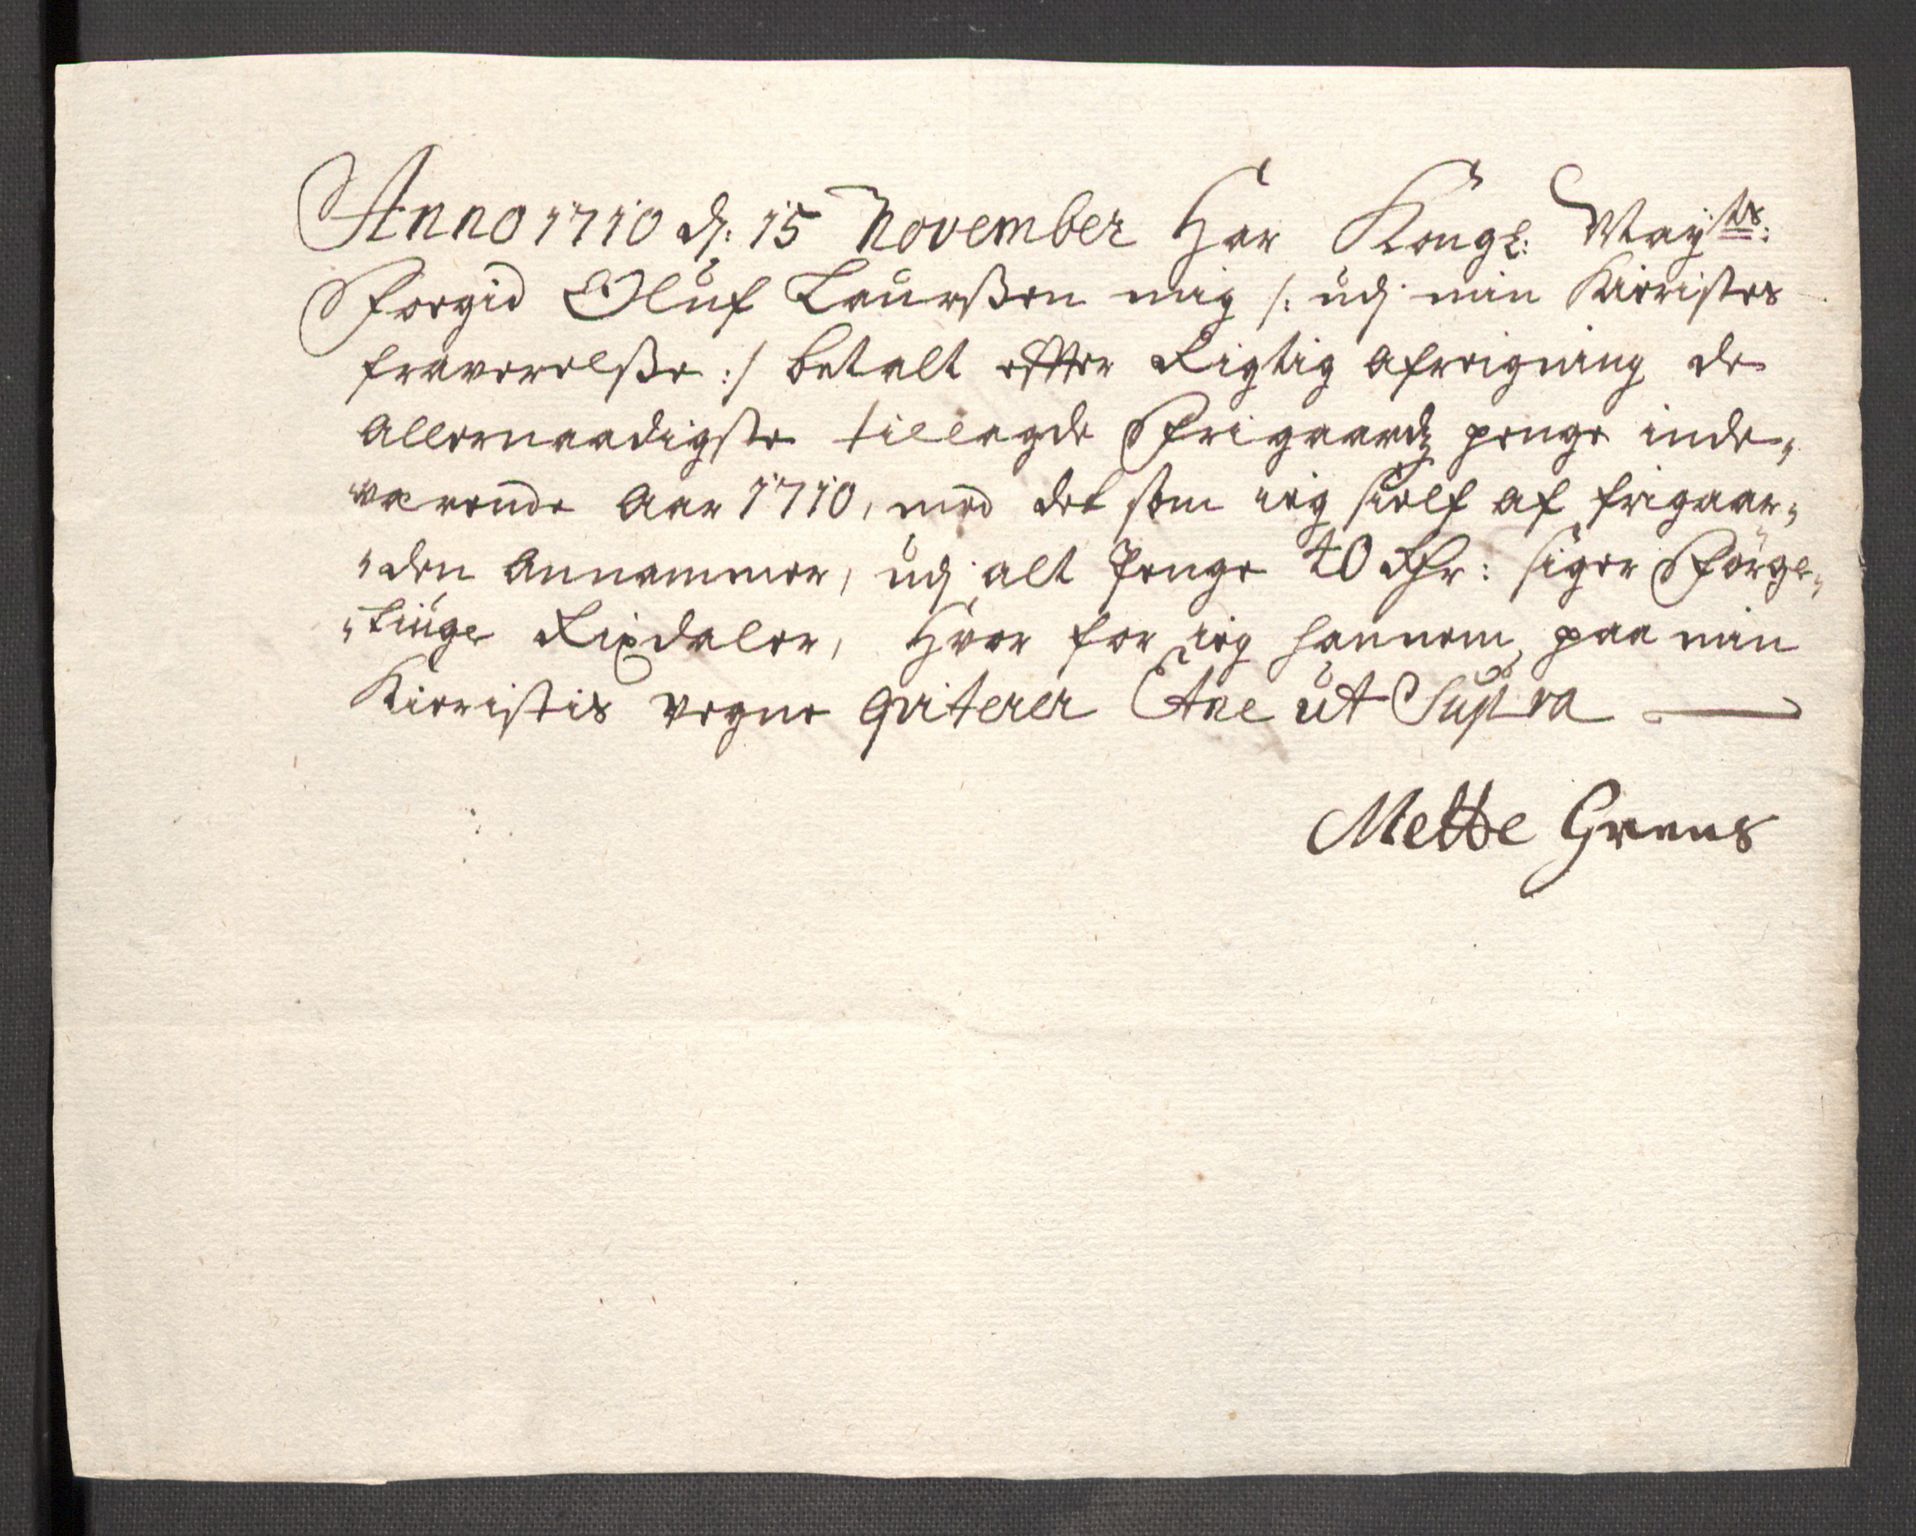 Anno 1710 d: 15 November Har Kongl: Mayts:
Foogid Oluf Laurßen mig /: udj min Kieristes
fraverelße :/ betalt effter Rigtig afreigning de
Allernaadigste tillagde Frigaardz penge inde„
værende Aar 1710, med det som ieg sielf af frigaar„
„den Annammer, udj alt Penge 40 Rdr: siger Förge„
„tiuge Rixdaler, Hvor for ieg hannem paa min
Kieristis vegne qviterer Etae ut Supra
Mette Greens